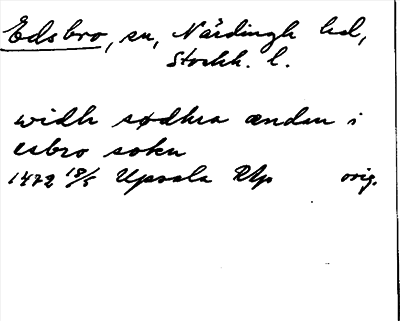 Edsbro, sn, Närdingh hd,
Stockh. l.
widh sødhra ændan i
esbro sokn
1472 18/5 Upsala Rhp orig.